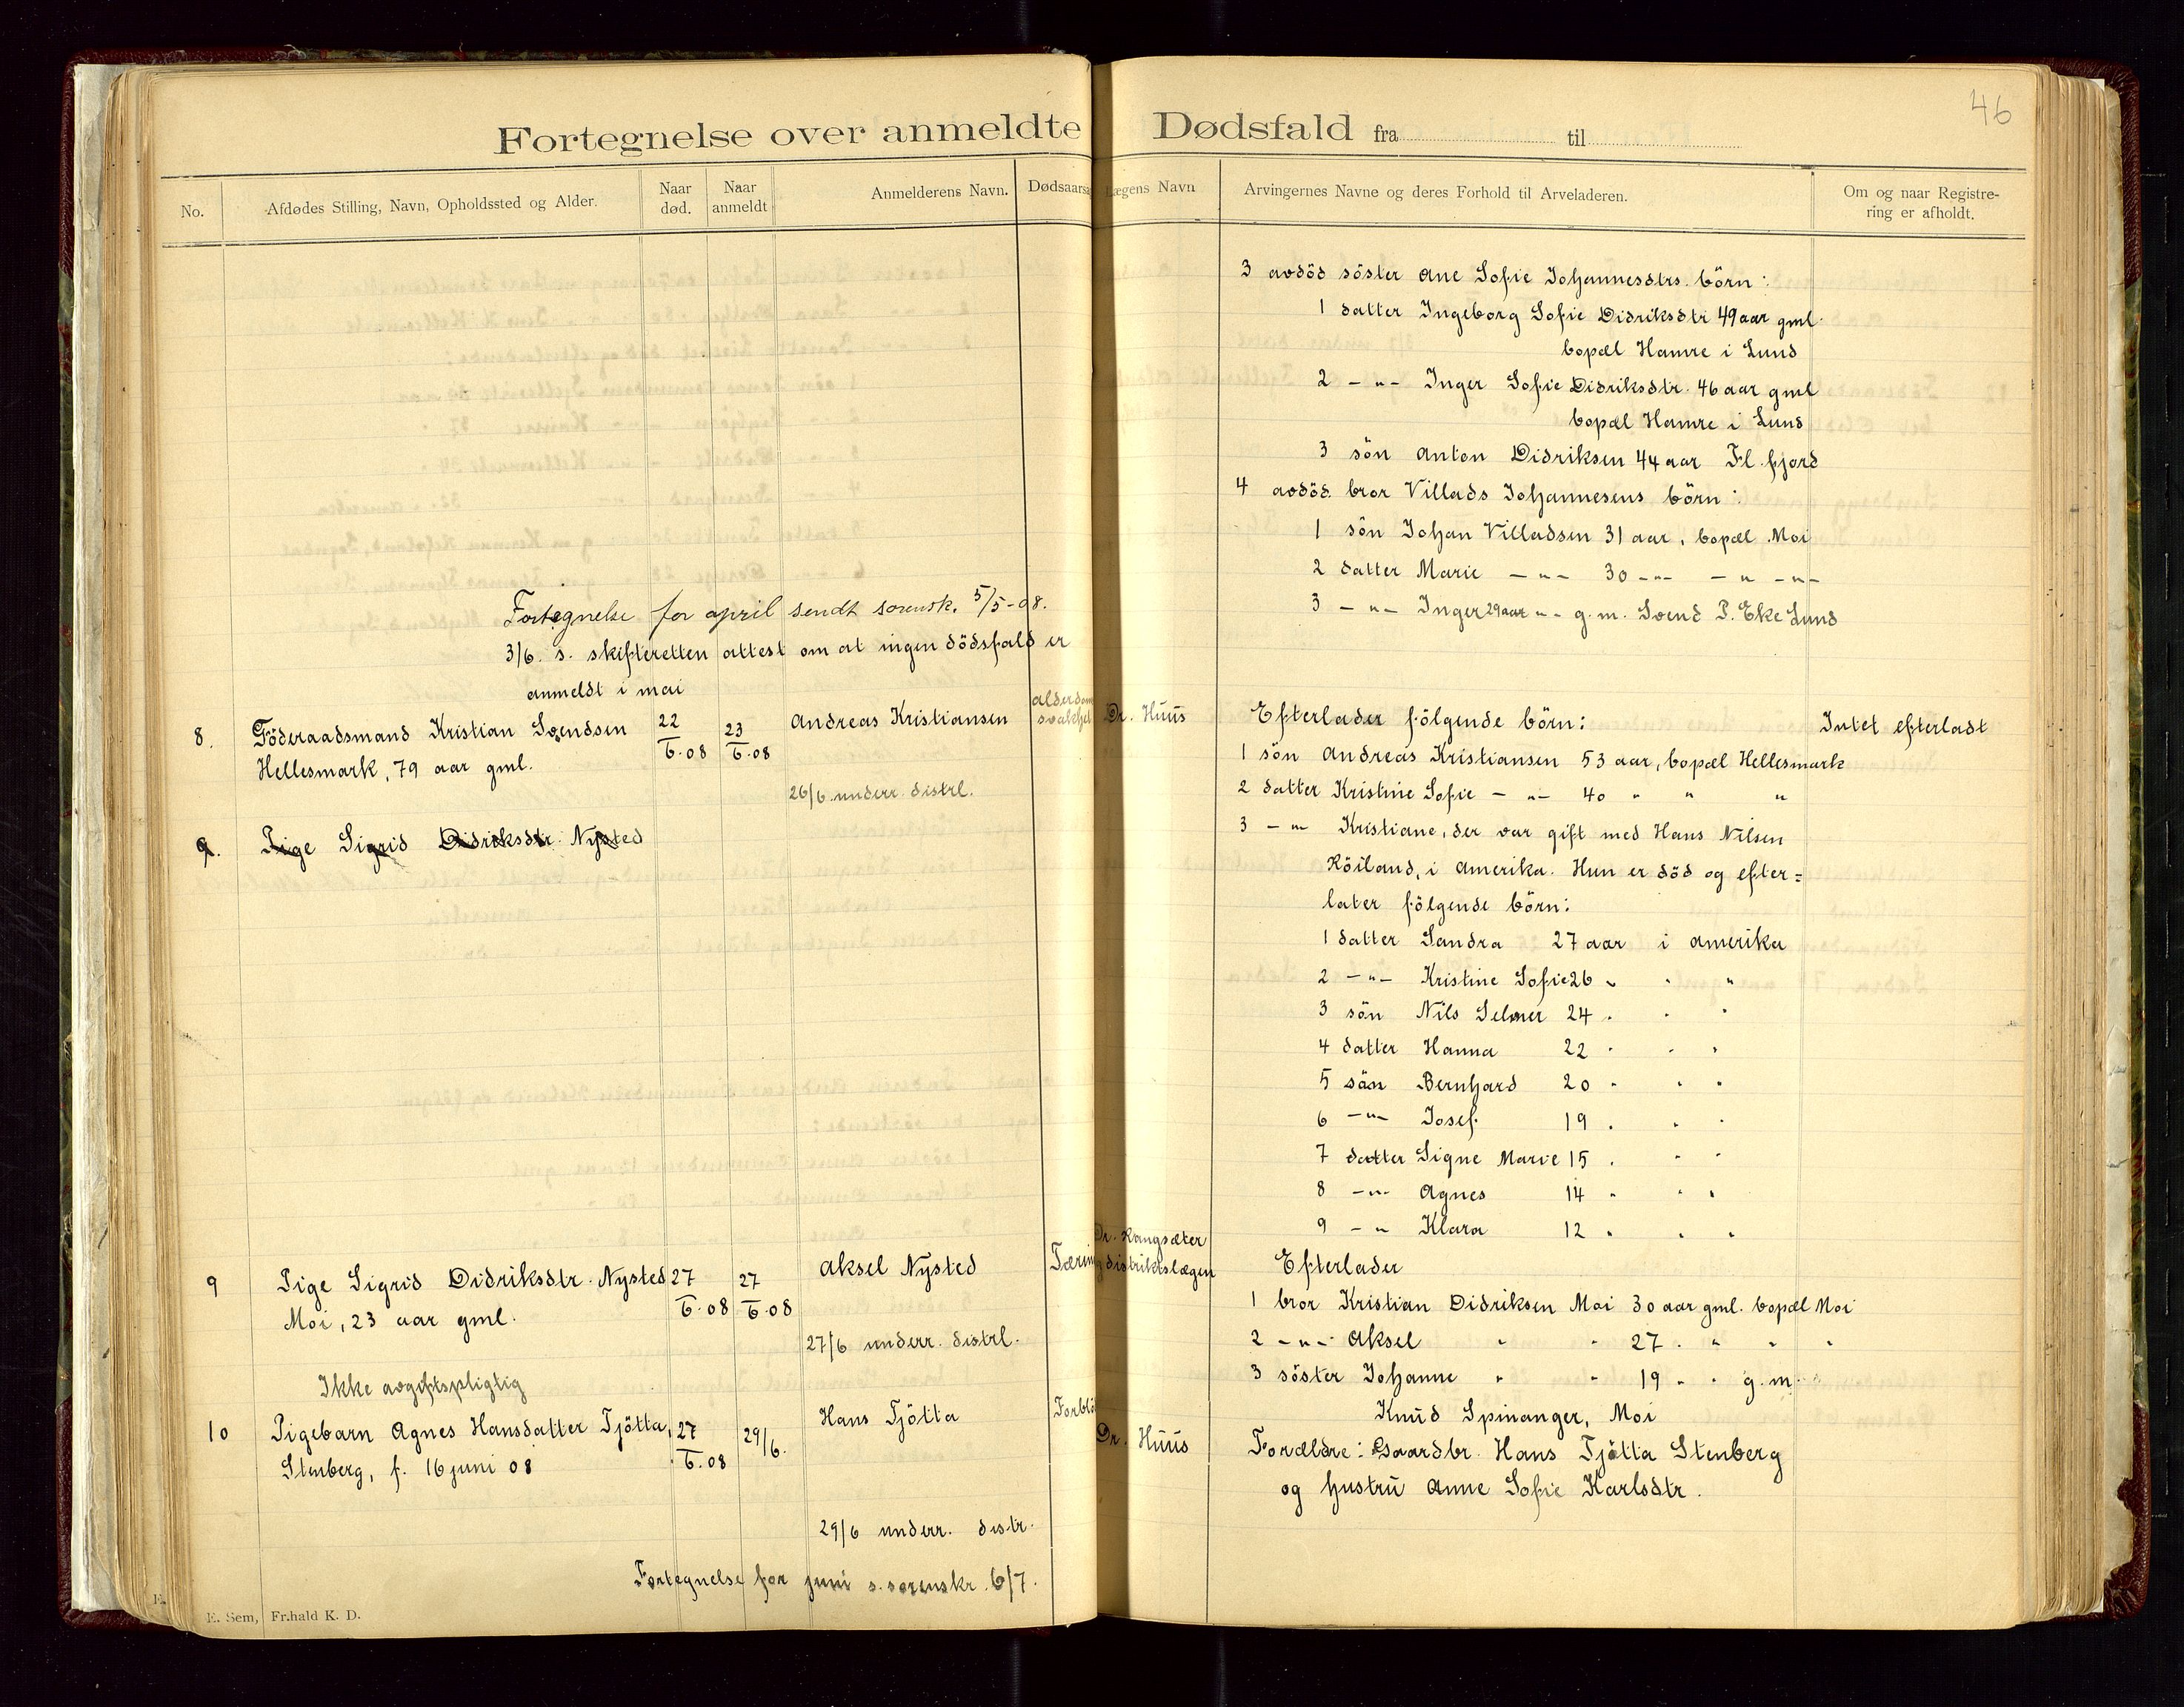 46
Fortegnelse over anmeldte Dødsfald fra til
No.
Afdødes Stilling, Navn, Opholdssted og Alder.
Naar død.
Naar anmeldt
Anmelderens Navn.
Dødsaarsa
Lægens Navn
Arvingernes Navne og deres Forhold til Arveladeren.
Om og naar Registre-
ring er afholdt.
3 avdöd söster Ane Sofie Johannesdtrs. börn:
1 datter Ingeborg Sofie Didriksdtr 49 aar gml.
bopæl Hamre i Lund
2 -"- Inger Sofie Didriksdtr. 46 aar gml
bopæl Hamre i Lund
3 sön Anton Didriksen 44 aar Fl.fjord
4 avdöd bror Villads Johannesens börn:
1 sön Johan Villadsen 31 aar, bopæl Moi
2 datter Marie -"- 30 -"- -"- -"-
3 -"- Inger 29 aar -"- g.m. Svend P. Eke Lund
Fortegnelse for april sendt sorensk. 5/5-08.
3/6. s. skifteretten attest om at ingen dödsfald er
anmeldt i mai
8. Föderaadsmand Kristian Svendsen
Hellesmark, 79 aar gml.
22/6.08
23/6.08
Andreas Kristiansen
26/6 underr. distrl.
alderdom
svakhet
Dr. Huus
Efterlader fölgende börn:
Intet efterladt
1 sön Andreas Kristiansen 53 aar, bopæl Hellesmark
2 datter Kristine Sofie -"- 40 " " "
3 -"- Kristiane, der var gift med Hans Nilsen
Röiland, i Amerika. Hun er död og efter=
later fölgende börn:
1 datter Sandra 27 aar i Amerika
2 -"- Kristine Sofie 26 " " "
3 sön Nils Selmer 24 " " "
4 datter Hanna 22 " " "
5 sön Bernhard 20 " " "
6 -"- Josef 19 " " "
7 datter Signe Marie 15 " " "
8 -"- Agnes 14 " " "
9 -"- Klara 12 " " "
9. Pige Sigrid Didriksdtr. Nysted
9 Pige Sigrid Didriksdtr. Nysted
Moi, 23 aar gml.
27/6.08
27/6.08
Aksel Nysted
27/6 underr. distrl.
Tæring
Dr. Kangsæter
distriktslægen
Efterlader
1 bror Kristian Didriksen Moi 30 aar gml. bopæl Moi
2 -"- Aksel " " 27 " " " "
3 söster Johanne " " 19 " " g.m.
Knud Spinanger, Moi
Ikke avgiftspligtig
10 Pigebarn Agnes Hansdatter Tjötta,
Stenberg, f. 16 juni 08
27/6.08
29/6.
Hans Tjötta
29/6 underr. distr.
Forblö
Dr. Huus
Forældre: Gaardbr. Hans Tjötta Stenberg
og hustru Anne Sofie Karlsdtr.
Fortegnelse for juni s. sorenskr. 6/7.
E. Sem, Fr.hald K. D.